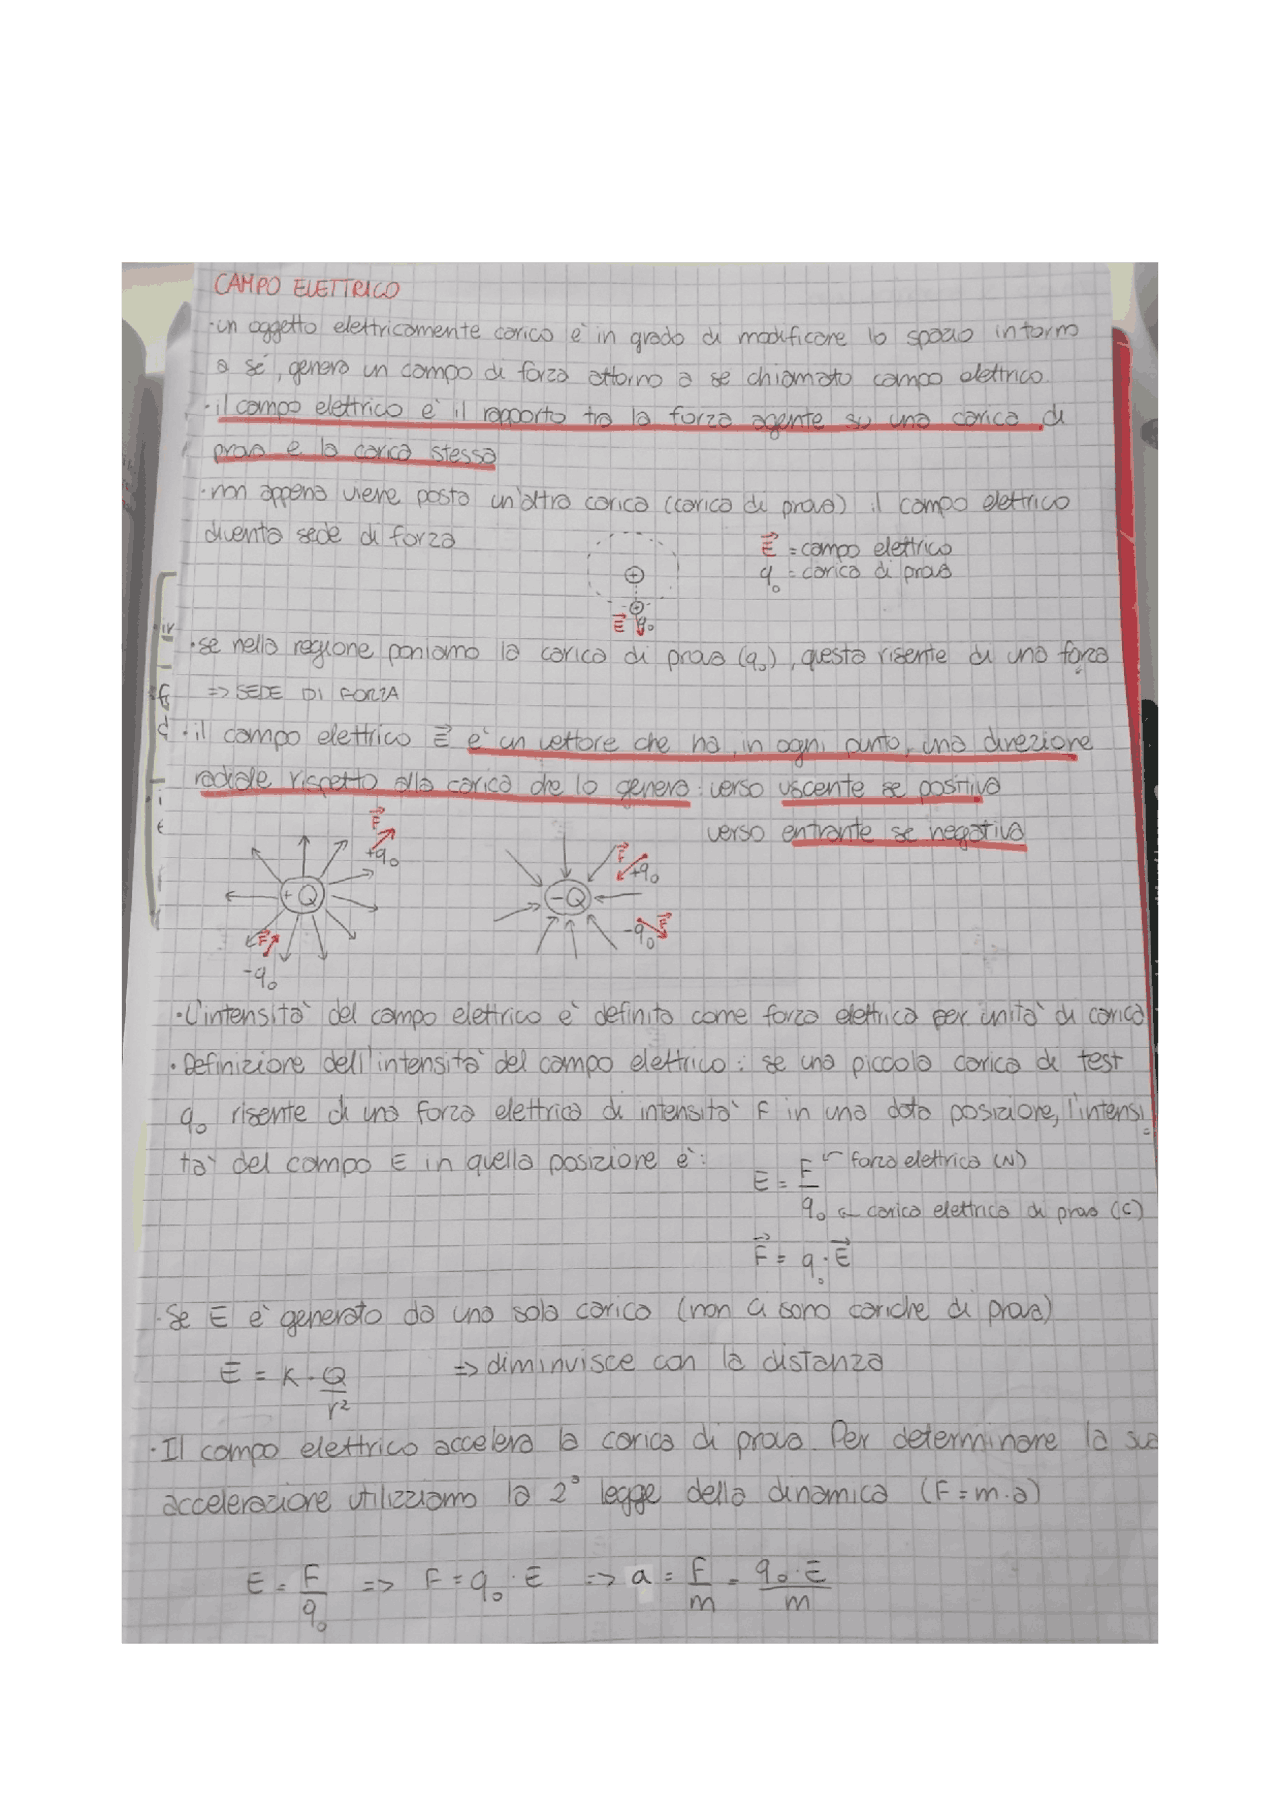 CAMPO ELETTRICO
·un oggetto elettricamente carico è in grado di modificare lo spazio intorno
a sé, genera un campo di forza attorno a se chiamato campo elettrico.
·il campo elettrico è il rapporto tra la forza agente su una carica di
prova e la carica stessa
·non appena viene posta un'altra carica (carica di prova) il campo elettrico
diventa sede di forza
E⃗ = campo elettrico
q₀ = carica di prova
+
+
E⃗ q₀
·se nella regione poniamo la carica di prova (q₀), questa risente di una forza
=> SEDE DI FORZA
·il campo elettrico E⃗ è un vettore che ha, in ogni punto, una direzione
radiale rispetto alla carica che lo genera: verso uscente se positiva
verso entrante se negativa
F⃗
+q₀
+Q
F⃗
-q₀
F⃗
+q₀
-Q
-q₀ F⃗
·L'intensità del campo elettrico è definita come forza elettrica per unità di carica
·Definizione dell'intensità del campo elettrico: se una piccola carica di test
q₀ risente di una forza elettrica di intensità F in una data posizione, l'intensi
tà del campo E in quella posizione è:
E = F/q₀
forza elettrica (N)
carica elettrica di prova (C)
F⃗ = q₀ · E⃗
·Se E è generato da una sola carica (non ci sono cariche di prova)
E = K · Q/r² => diminuisce con la distanza
·Il campo elettrico accelera la carica di prova. Per determinare la sua
accelerazione utilizziamo la 2° legge della dinamica (F = m·a)
E = F/q₀ => F = q₀ · E => a = F/m = q₀·E/m